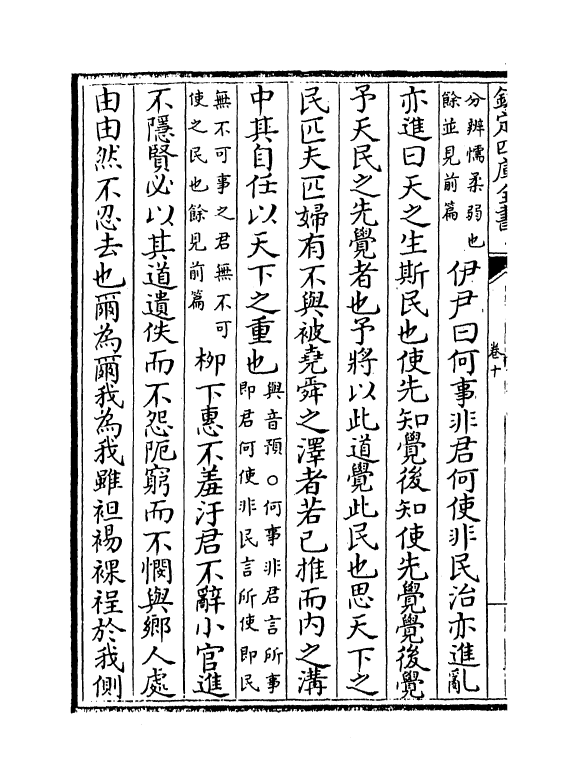 欽定四庫全書
卷十
分辨懦柔弱也
餘並見前篇
伊尹曰何事非君何使非民治亦進亂
亦進曰天之生斯民也使先知覺後知使先覺覺後覺
予天民之先覺者也予將以此道覺此民也思天下之
民匹夫匹婦有不與被堯舜之澤者若己推而內之溝
中其自任以天下之重也
與音預○何事非君言所事
即君何使非民言所使即民
無不可事之君無不可
使之民也餘見前篇
柳下惠不羞汙君不辭小官進
不隱賢必以其道遺佚而不怨阨窮而不憫與鄉人處
由由然不忍去也爾為爾我為我雖袒裼裸裎於我側